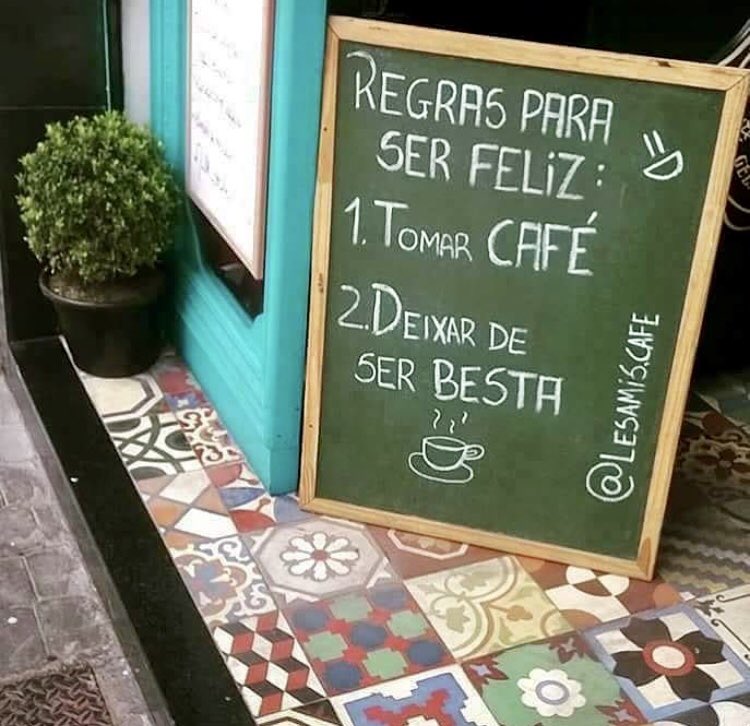 REGRAS PARA
SER FELIZ:
1. TOMAR CAFÉ
2. DEIXAR DE
SER BESTA
@LESAMIS.CAFE